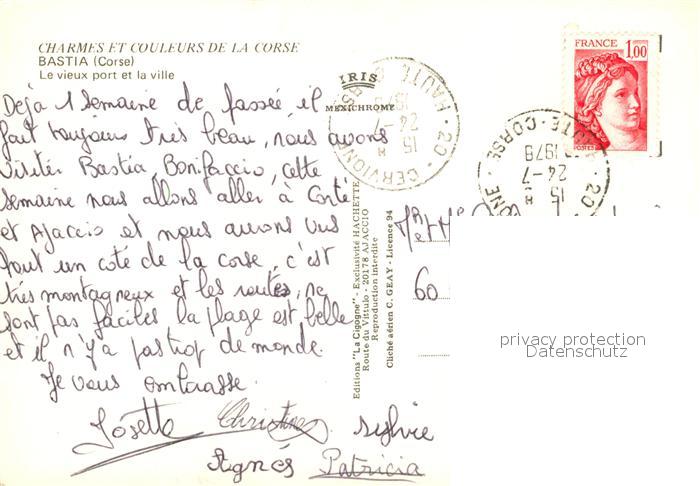 CHARMES ET COULEURS DE LA CORSE
BASTIA (Corse)
Le vieux port et la ville
IRIS
MEXICHROME
Deja 1 semaine de passée il
fait toujours très beau, nous avons
visiter Bastia, Bonifaccio, cette
semaine nous allons aller à Corté
et Ajaccio et nous aurons vus
tout un coté de la corse, c'est
très montagneux et les routes, ne
sont pas faciles la plage est belle
et il n'y a pas trop de monde.
Je vous embrasse
Josette Christine Sylvie
Agnès Patricia
Editions "La Cigogne" - Exclusivité HACHETTE
Route du Vittulo - 20178 AJACCIO
Reproduction interdite
Cliché aérien C. GEAY - Licence 94
20 - CERVIONE
HAUTE CORSE
15 H
24-7
1978
FRANCE
1,00
POSTES
20
CORSE
15 H
24-7
1978
60
privacy protection
Datenschutz